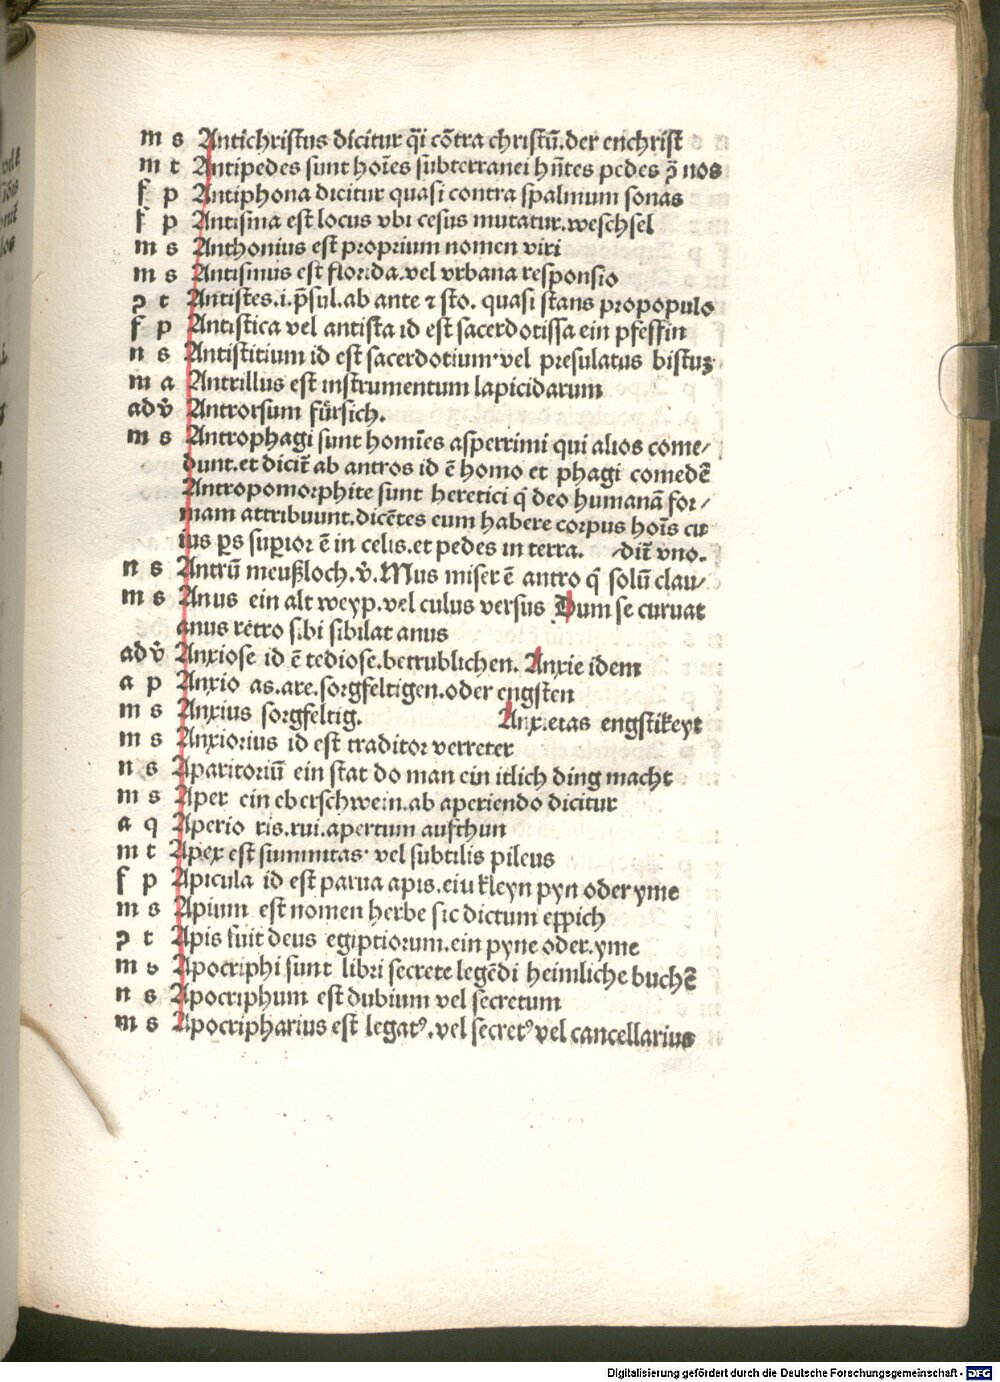 m s Antichristus dicitur q̄i cōtra christū.der enchrist
m t Antipedes sunt hoīes subterranei hn̄tes pedes ꝯ̄ nos
f p Antiphona dicitur quasi contra spalmum sonas
f p Antisma est locus vbi cesus mutatur.weschsel
m s Anthonius est proprium nomen viri
m s Antismus est florida.vel vrbana responsio
ꝯ t Antistes.i.p̄sul.ab ante ⁊ sto. quasi stans propopulo
f p Antistica vel antista id est sacerdotissa ein pfeffin
n s Antistitium id est sacerdotium·vel presulatus bistuꝫ
m a Antrillus est instrumentum lapicidarum
adv̄ Antrorsum fürsich.
m s Antrophagi sunt homīes asperrimi qui alios come⸗
dunt.et dicit̄ ab antros id ē homo et phagi comedē
Antropomorphite sunt heretici q̄ deo humanā for⸗
mam attribuunt.dicētes eum habere corpus hoīs cu
ius ꝑs suꝑior ē in celis.et pedes in terra. ⸗dit̄ vno.
n s Antrū meußloch.v̄.Mus miser ē antro q̄ solū clau⸗
m s Anus ein alt weyp.vel culus versus Dum se curuat
anus retro sibi sibilat anus
adv̄ Anxiose id ē tediose.betrublichen. Anxie idem
a p Anxio as.are.sorgfeltigen.oder engsten
m s Anxius sorgfeltig. Anxietas engstikeyt
m s Anxiorius id est traditor verreter
n s Aparitoriū ein stat do man ein itlich ding macht
m s Aper ein eberschwein.ab aperiendo dicitur
a q Aperio ris.rui.apertum aufthun
m t Apex est summitas· vel subtilis pileus
f p Apicula id est parua apis.eiu kleyn pyn oder yme
m s Apium est nomen herbe sic dictum eppich
ꝯ t Apis fuit deus egiptiorum.ein pyne oder.yme
m s Apocriphi sunt libri secrete legēdi heimliche buchē
n s Apocriphum est dubium vel secretum
m s Apocripharius est legatꝰ.vel secretꝰ vel cancellarius
Digitalisierung gefördert durch die Deutsche Forschungsgemeinschaft - DFG